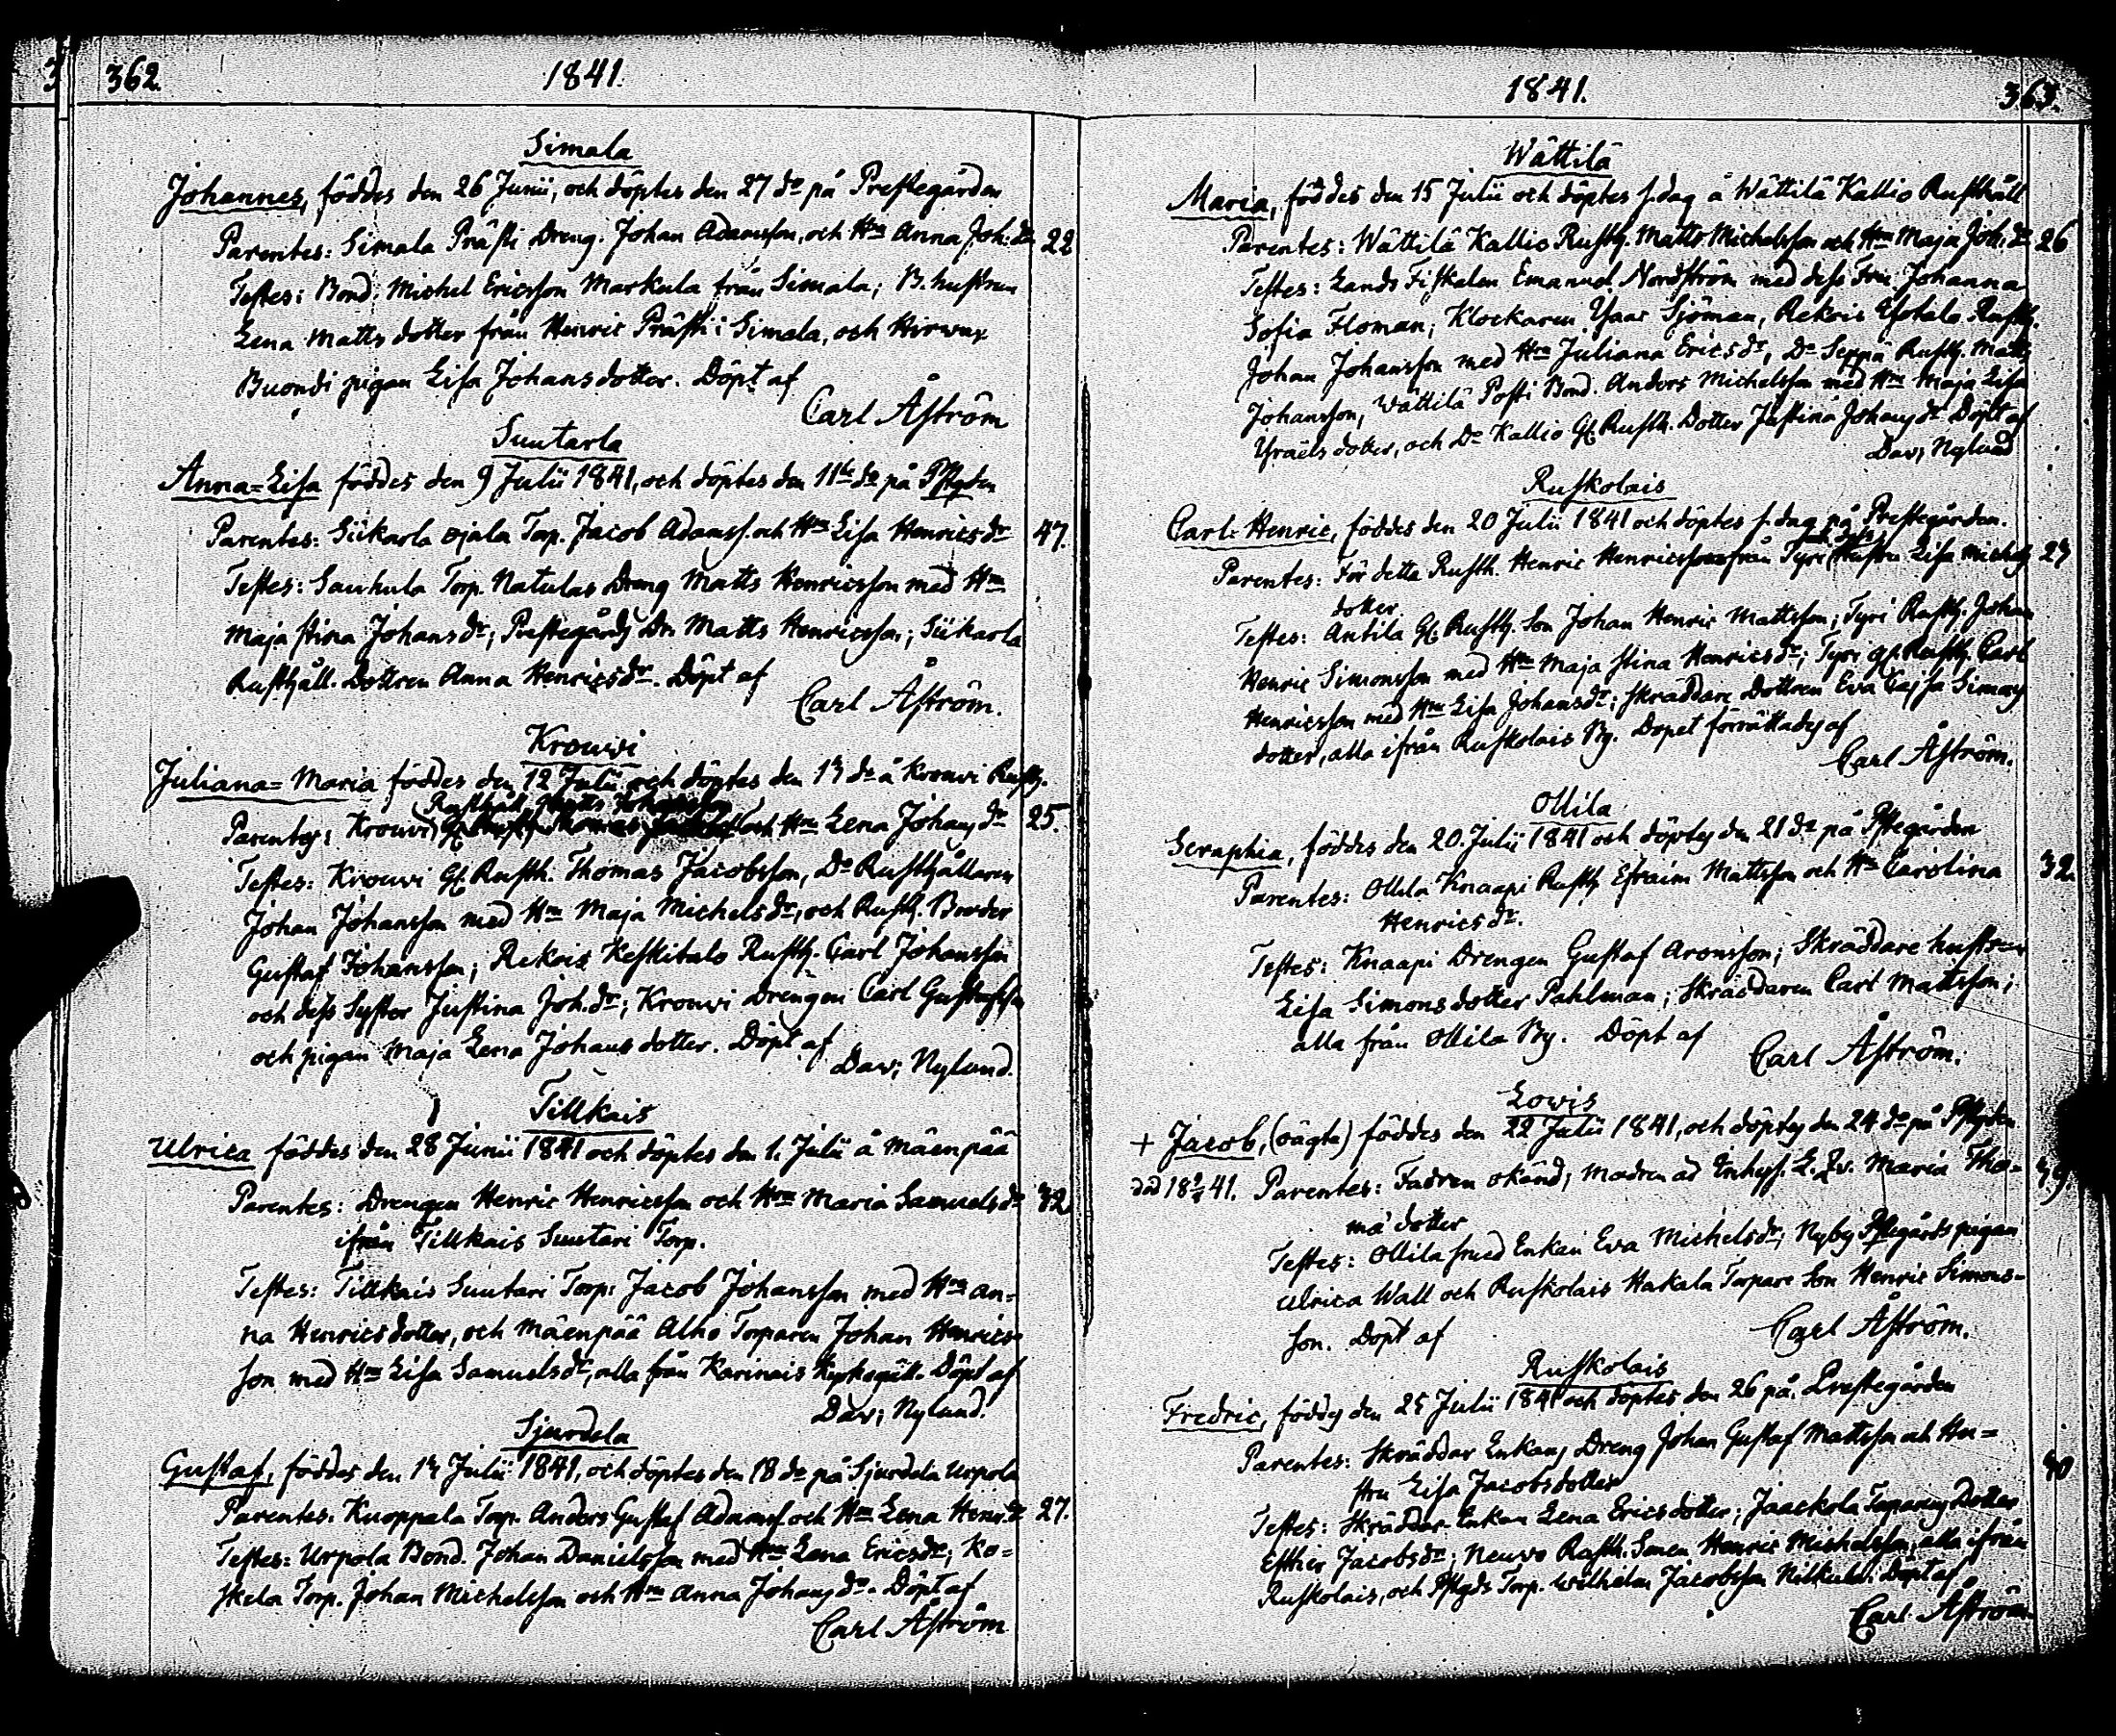 362.
1841.
Simala
Johannes, föddes den 26 Junii, och döptes den 27 do på Prestegården
Parentes: Simala Prästi Dreng. Johan Adamsson, och Hru Anna Joh: dr 22
Testes: Bond: Michel Ericsson Markula från Simala; B. hustrun
Lena Matts dotter från Henric Prästi i Simala, och Hirwax
Buondi pigan Lisa Johansdotter. Döpt af
Carl Åström
Suutarla
Anna=Lisa föddes den 9 Julii 1841, och döptes den 11te do på Pstgden
Parentes: Siikarla Ojala Torp. Jacob Adamss. och Hru Lisa Henricsdr 47.
Testes: Sauhula Torp. Natulas Dreng Matts Henricsson med Hru
Maja Stina Johansdr; Prestegårds Dr. Matts Henricsson; Siikarla
Rusthåll. Dottren Anna Henricsdr. Döpt af
Carl Åström.
Krouwi
Juliana=Maria föddes den 12 Julii och döptes den 14 do å Krouwi Rusth.
Rusthåll. Matts Johansson
Parentes: Krouwi och Hru Lena Johans dr 25.
Testes: Krouwi Gl. Rusth. Thomas Jacobsson, Do Rusthållaren
Johan Johansson med Hru Maja Michelsdr, och Rusth. Broder
Gustaf Johansson; Rekois Keskitalo Rusth. Carl Johansson
och dess Syster Justina Joh.dr; Krouwi Drengen Carl Gustafsson
och pigan Maja Lena Johansdotter. Döpt af
Dav; Nylund.
Tillkais
Ulrica föddes den 28 Junii 1841 och döptes den 1. Julii å Mäenpää
Parentes: Drengen Henric Henricsson och Hru Maria Samuelsdr 32
ifrån Tillkais Suutari Torp.
Testes: Tillkais Suutari Torp: Jacob Johansson med Hru An=
na Henricsdotter, och Mäenpää Alho Torparen Johan Henrics=
son med Hru Lisa Samuelsdr, alla från Karinais Kyrkogäll. Döpt af
Dav; Nylund.
Sjurdela
Gustaf, föddes den 14 Julii 1841, och döptes den 18 do på Sjurdela Urpola
Parentes. Kuoppala Torp. Anders Gustaf Adamss och Hru Lena Henr. dr 27.
Testes: Urpola Bond. Johan Danielsson med Hru Lena Ericsdr; Ko=
skela Torp. Johan Michelsson och Hru Anna Johans dr. Döpt af
Carl Åström
1841.
363.
Wättilä
Maria, föddes den 15 Julii och döptes s. dag å Wättilä Kallio Rusthåll
Parentes: Wättilä Kallio Rusth. Matts Michelsson och Hru Maja Joh. dr 26
Testes: Lands Fiskalen Emanuel Nordström med dess Fru Johanna
Sofia Floman; Klockaren Isaac Sjöman, Rekois Ylotalo Rusth.
Johan Johansson med Hru Juliana Ericsdr, Do Seppä Rusth. Matts
Johansson, Wättilä Posti Bond. Anders Michelsson med Hru Maja Lisa
Israels dotter, och Do Kallio Gl. Rusth. Dotter Justina Johans dr. Döpt af
Dav; Nylund
Ruskolais
Carl Henric, föddes den 20 Julii 1841 och döptes s. dag på Prestegården.
Parentes: För detta Rusth. Henric Henricsson från Tyri Hustru Lisa Michels 24
dotter.
Testes: Antila Gl. Rusth. Son Johan Henric Mattsson; Tyri Rusth. Johan
Henric Simonsson med Hru Maja Stina Henricsdr; Tyri gl. Rusth. Carl
Henricsson med Hru Lisa Johansdr; Skräddare Dottren Eva Cajsa Simons
dotter, alla ifrån Ruskolais By. Dopet förrättades af
Carl Åström.
Ollila
Seraphia, föddes den 20. Julii 1841 och döptes den 21 do på Pstegården
Parentes: Ollila Knaapi Rusth. Efraim Mattsson och Hru Carolina 32.
Henricsdr.
Testes: Knaapi Drengen Gustaf Aronsson; Skräddare hustrun
Lisa Simonsdotter Pahlman; Skräddaren Carl Mattsson;
alla från Ollila By. Döpt af
Carl Åström.
Lowis
+ Jacob, (oägta) föddes den 22 Julii 1841, och döptes den 24 do på Pstgden
död 41. Parentes: Fadren okänd; Modren är Inhyss. L. Qv. Maria Tho= 39.
mä dotter
Testes: Ollila smed Enkan Eva Michelsdr; Nyby Pstegårdspigan
Ulrica Wall och Ruskolais Hakala Torpare Son Henric Simons=
son. Döpt af
Carl Åström.
Ruskolais
Fredric, föddes den 25 Julii 1841 och döptes den 26 på. Prestegården
Parentes: Skräddar Enkans Dreng Johan Gustaf Mattsson och Hu= 40
stru Lisa Jacobsdotter
Testes: Skräddar-Enkan Lena Ericsdotter; Jaackola Torparens Dotter
Esther Jacobsdr; Neuvo Rusth. Sonen Henric Michelsson, alla ifrån
Ruskolais, och Pstgds Torp. Wilhelm Jacobsson Nikkula. Döpt af
Carl Åström